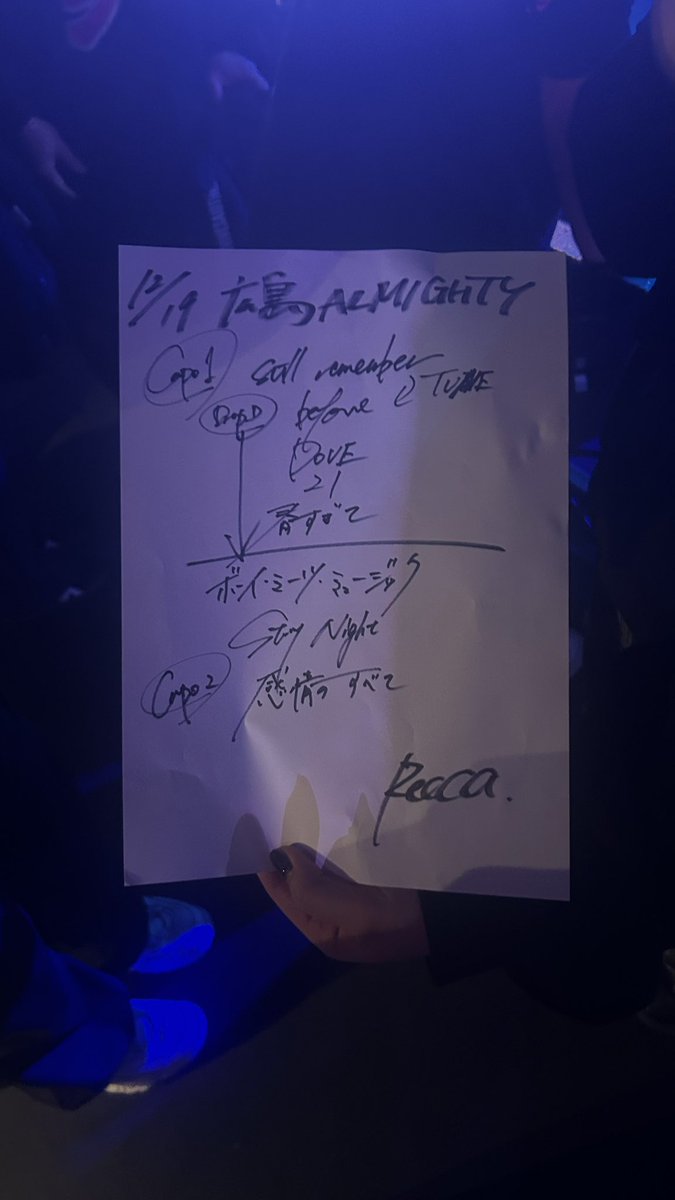 12/19 広島 ALMIGHTY
Capo1 Still remember
DropD before TUNE
DOVE
21
春すぎて
ボーイ・ミーツ・ミュージック
Stay Night
Capo2 感情のすべて
Reaca.